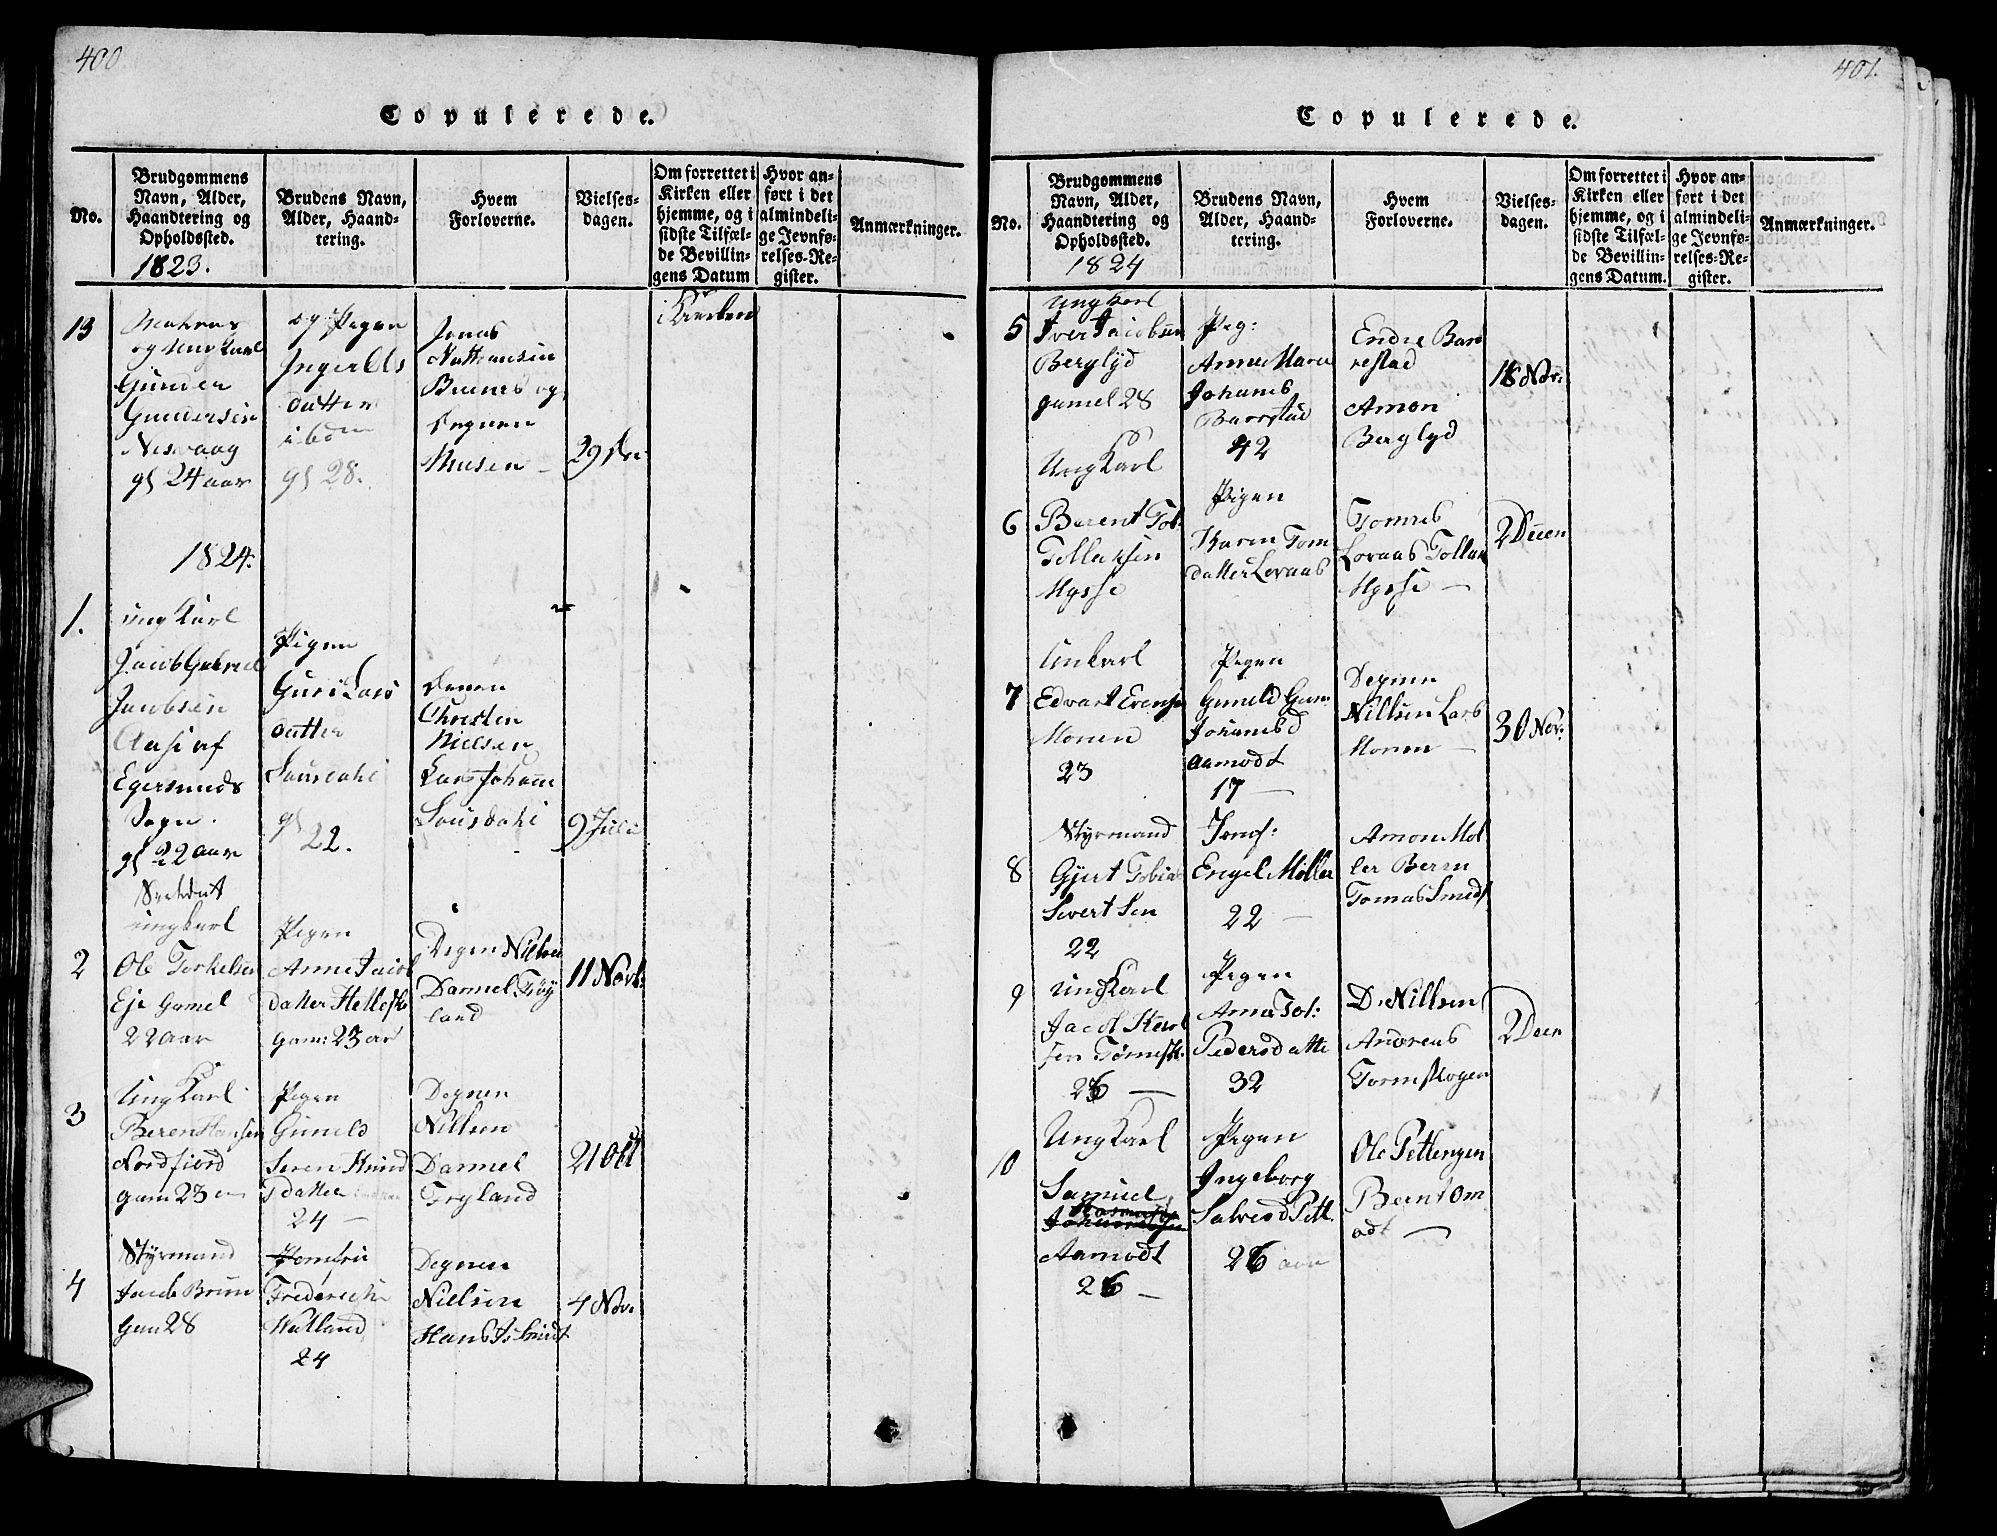 400
Copulerede.
No.
Brudgommens
Navn, Alder,
Haandtering og
Opholdssted.
1823.
Brudens Navn,
Alder, Haand-
tering.
Hvem
Forloverne.
Vielses-
dagen.
Om forrettet i
Kirken eller
hjemme, og i
sidste Tilfæl-
de Bevillin-
gens Datum
Hvor an-
ført i det
almindeli-
ge Jevnfø-
relses-Re-
gister.
Anmærkninger.
13
og Ung Karl
Gunder
Gundersen
Nesvaag
gl 24 aar
og Pigen
datter
ibdm
gl 28.
Jonas
Nathansen
og
Degnen
29 De
i Kirken
1824.
1.
ung Karl
Jacob Gabriel
Jacobsen
af
Egersunds
Sogn.
gl 22 aar
Pigen
Guri Lars
datter
gl
22.
Christen
Nielsen
Lars Johann
9 Juli
2
ungkarl
Ole Torkelsen
Eje Gamel
22 aar
Pigen
Anne Jacob
datter
gam: 23 ar
Degen Nilsen
Daniel Frøy
land
11 Novb:
3
Ung Karl
Beren Hansen
Nordfiord
gam 23
Pigen
Guneld
Seren Knud
datter
24 —
Degnen
Nillsen
Daniel
Fryland
21 Oct
4
Styrmand
Jacob Bruun
Gam 28
Jomfru
Frederiche
Walland
24
Degnen
Nielsen
Hans Js Smidt
4 Nov:
401.
Copulerede.
No.
Brudgommens
Navn, Alder,
Haandtering og
Opholdssted.
1824
Brudens Navn,
Alder, Haand-
tering.
Hvem
Forloverne.
Vielses-
dagen.
Om forrettet i
Kirken eller
hjemme, og i
sidste Tilfæl-
de Bevillin-
gens Datum.
Hvor an-
ført i det
almindeli-
ge Jevnfø-
relses-Re-
gister.
Anmærkninger.
5
Ung karl
Iver Jacobsen
Berglyd
gamel 28
Pig:
Anne Maria
Johanes
Barrstad
42
Endre Bar
restad
Amon
Berglyd
Nov:
6
Ung Karl
Berent Tol:
Tollaksen
Hysse
Pigen
Karen Tom
datter Loraas
Tomes
Loraas Tollak
Hysse —
2 Decen
7
Unkarl
Edvart Evensen
Monen
23
Pigen
Guneld Gur
Johanesd
aamodt
17 —
Degnen
Nillsen Lars
Monen —
30 Nov:
8
Styrmand
Gjert Tobias
Sivert Sen
22
Jomf:
Engel Møller
22 —
Amon Møl
ler Beren
Tomas Smedt
9
ung Karl
Jacob
sen Tørnesk.
26 —
Pigen
Anne Tol:
Pedersdatte
32
D: Nillsen
Andreas
Tornskogen
2 Decn
10
Ung Karl
Samuel
Aamodt
26 —
Pigen
Ingeborg
Salvesd Pett.
26 aar
Ole Pettengen
Bernt Om
odt —